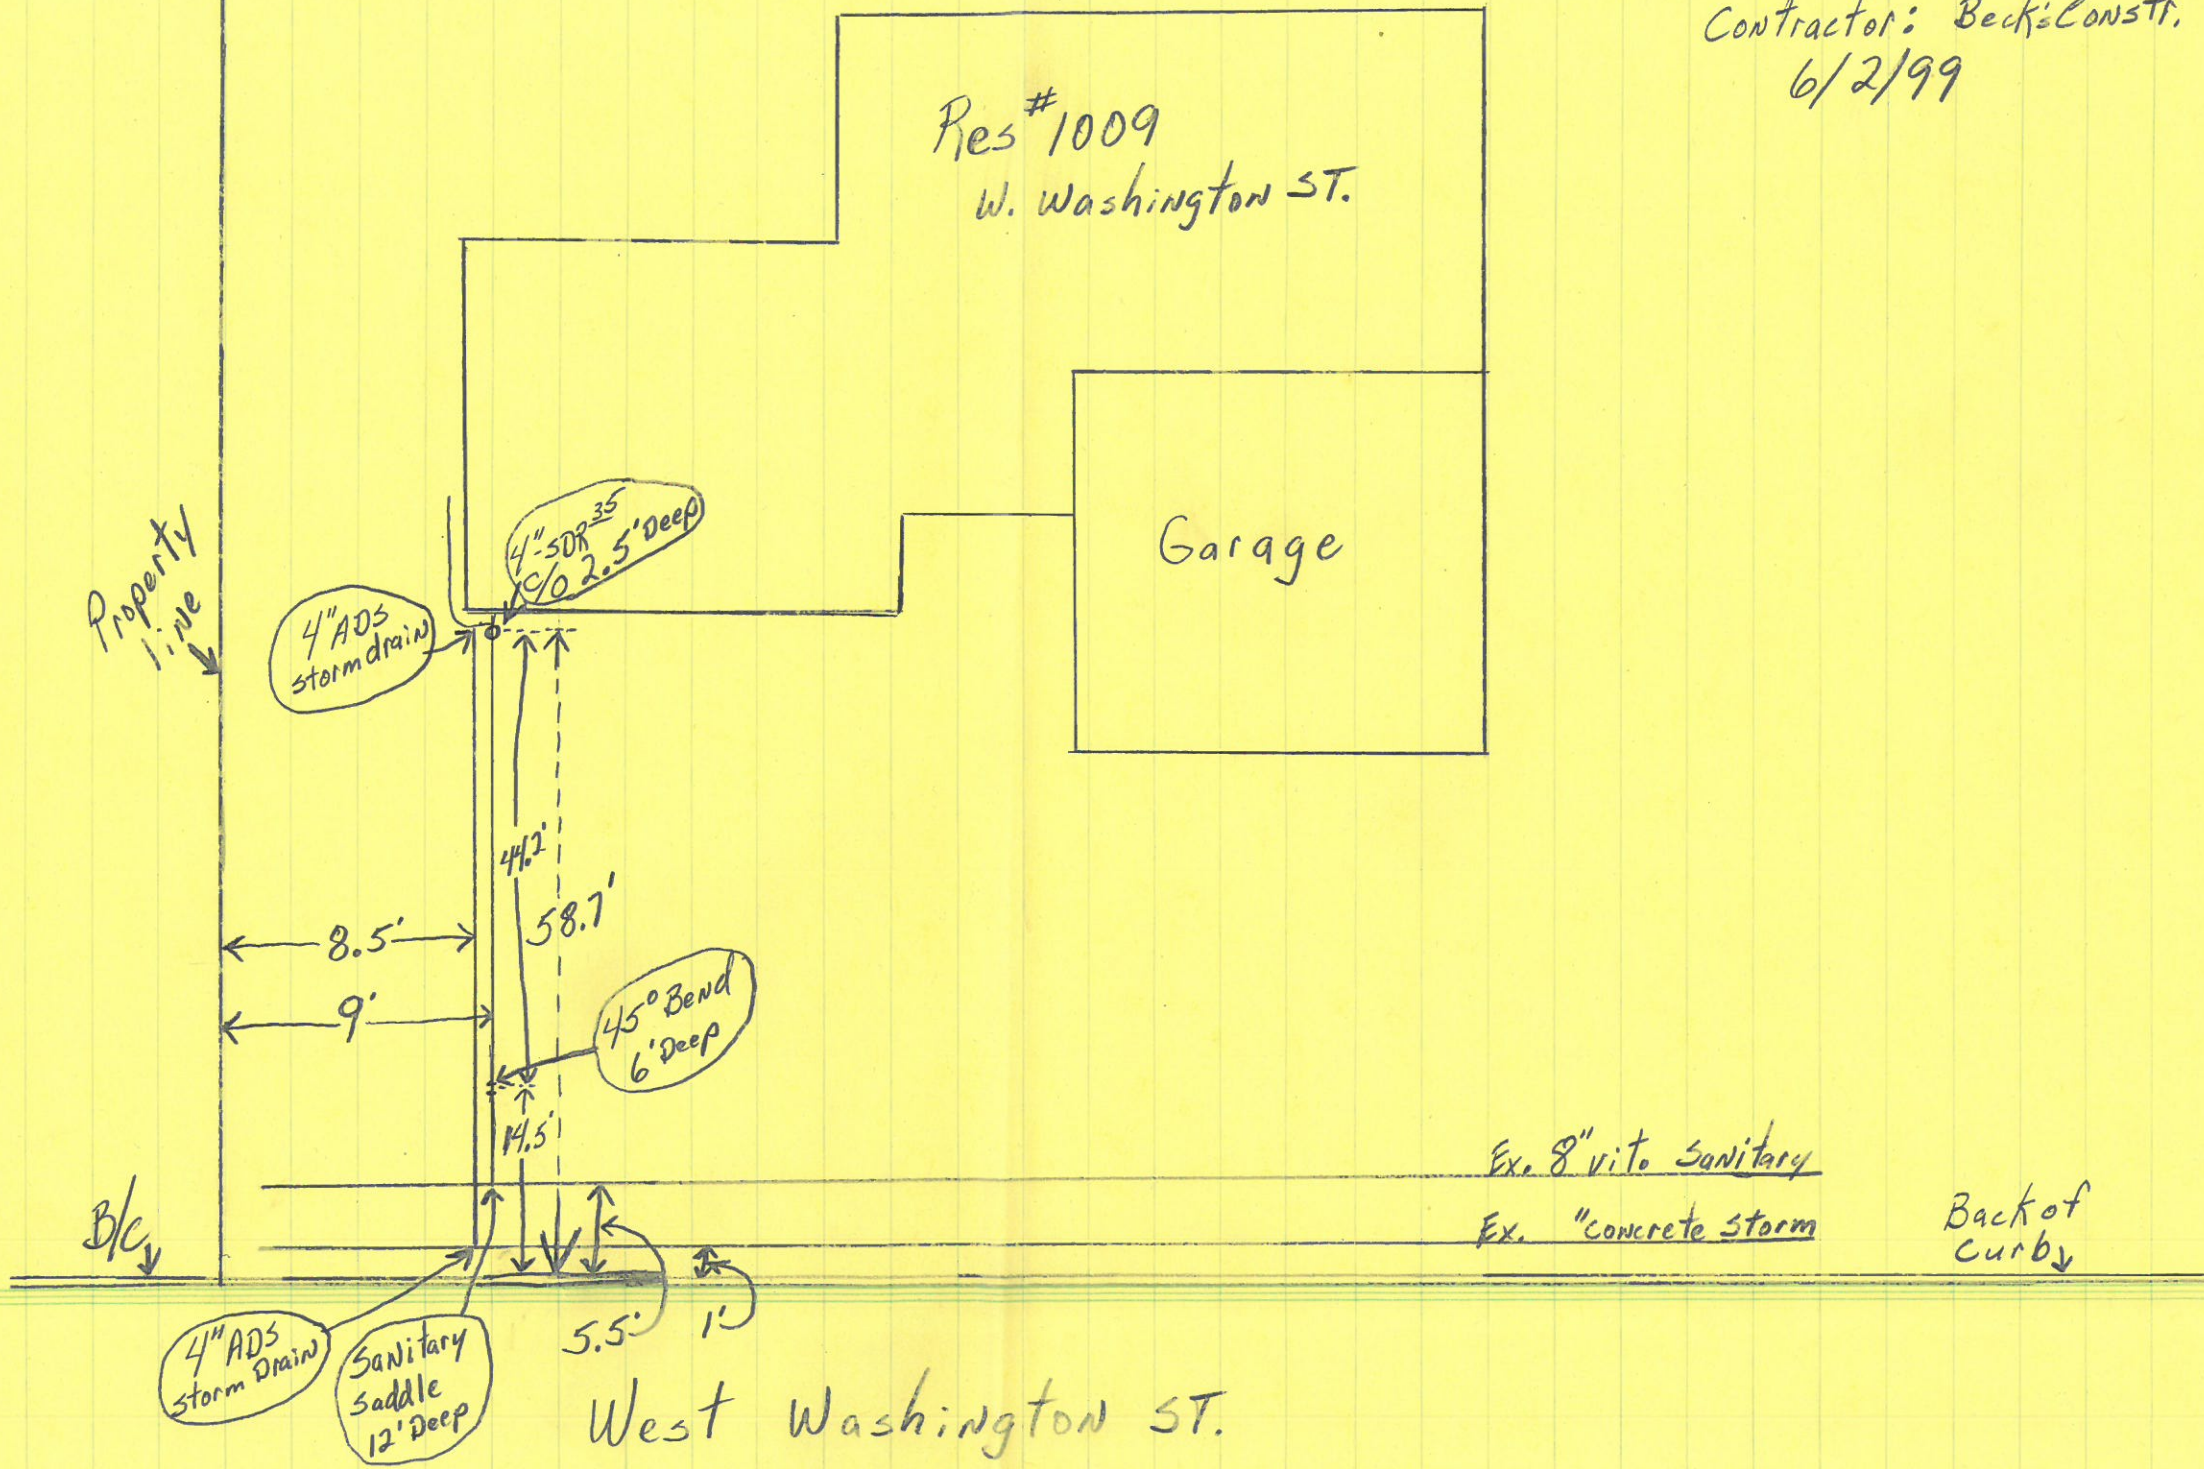 Contractor: Beck's Constr.
6/2/99
Res #1009
W. Washington ST.
4"-SDR 35
C/O 2.5' Deep
Garage
Property
line
4" ADS
storm drain
44.2'
58.7'
8.5'
9'
45° Bend
6' Deep
14.5'
Ex. 8" vit. Sanitary
Ex. "concrete storm
B/C
Back of
curb
4" ADS
storm Drain
Sanitary
saddle
12' Deep
5.5'
1'
West Washington ST.